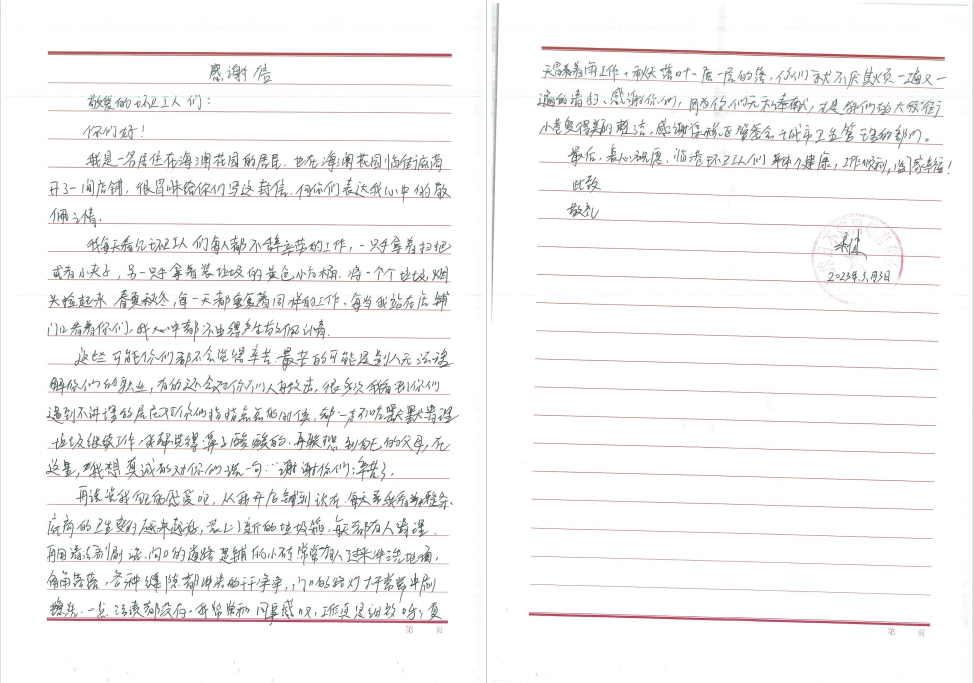 感谢信
敬爱的环卫工人们：
你们好！
我是一名居住在海湖花园的居民，也在海湖花园临街底商
开了一间店铺，很冒昧给你们写这封信，向你们表达我心中的敬
佩之情。
我每天看见环卫工人们每人都不辞辛劳的工作，一只手拿着扫把
或者小夹子，另一只手拿着装垃圾的黄色小桶，将一个个垃圾，烟
头捡起来，春夏秋冬，每一天都重复着同样的工作，每当我站在店铺
门口看着你们，我心中都不由得产生敬佩之情。
这些可能你们都不会觉得辛苦，最苦的可能是别人无法理
解你们的职业，有的还会对你们人身攻击，很多次我看到你们
遇到不讲理的居民对你们指指点点的时候，都一声不吭默默清理
垃圾继续工作，我都觉得鼻子酸酸的，再联想到自己的父母，在
这里，我想真诚的对你们说一句：谢谢你们，辛苦了。
再谈谈我自己的感受吧，从我开店铺到现在，每天
底商的卫生变的越来越好，装上了新的垃圾箱，每天都有人清理，
门口的道路常常有人过来冲洗地面，
角角落落，各种缝隙都冲洗的干干净净，门口的路灯杆常常
一点污渍都没有，我常常和同事感叹，工作真是细致呀，夏
天冒着着雨工作，秋天落叶一层一层的落，你们就不厌其烦一遍又一
遍的清扫，感谢你们，因为你们无私奉献，才是我们的大街
小巷变得美的整洁，感谢管委会城市卫生管理的部门。
最后，衷心祝愿，临港环卫工人们身体健康，工作顺利，阖家幸福！
此致
敬礼
2023年3月3日
第 页
第 页